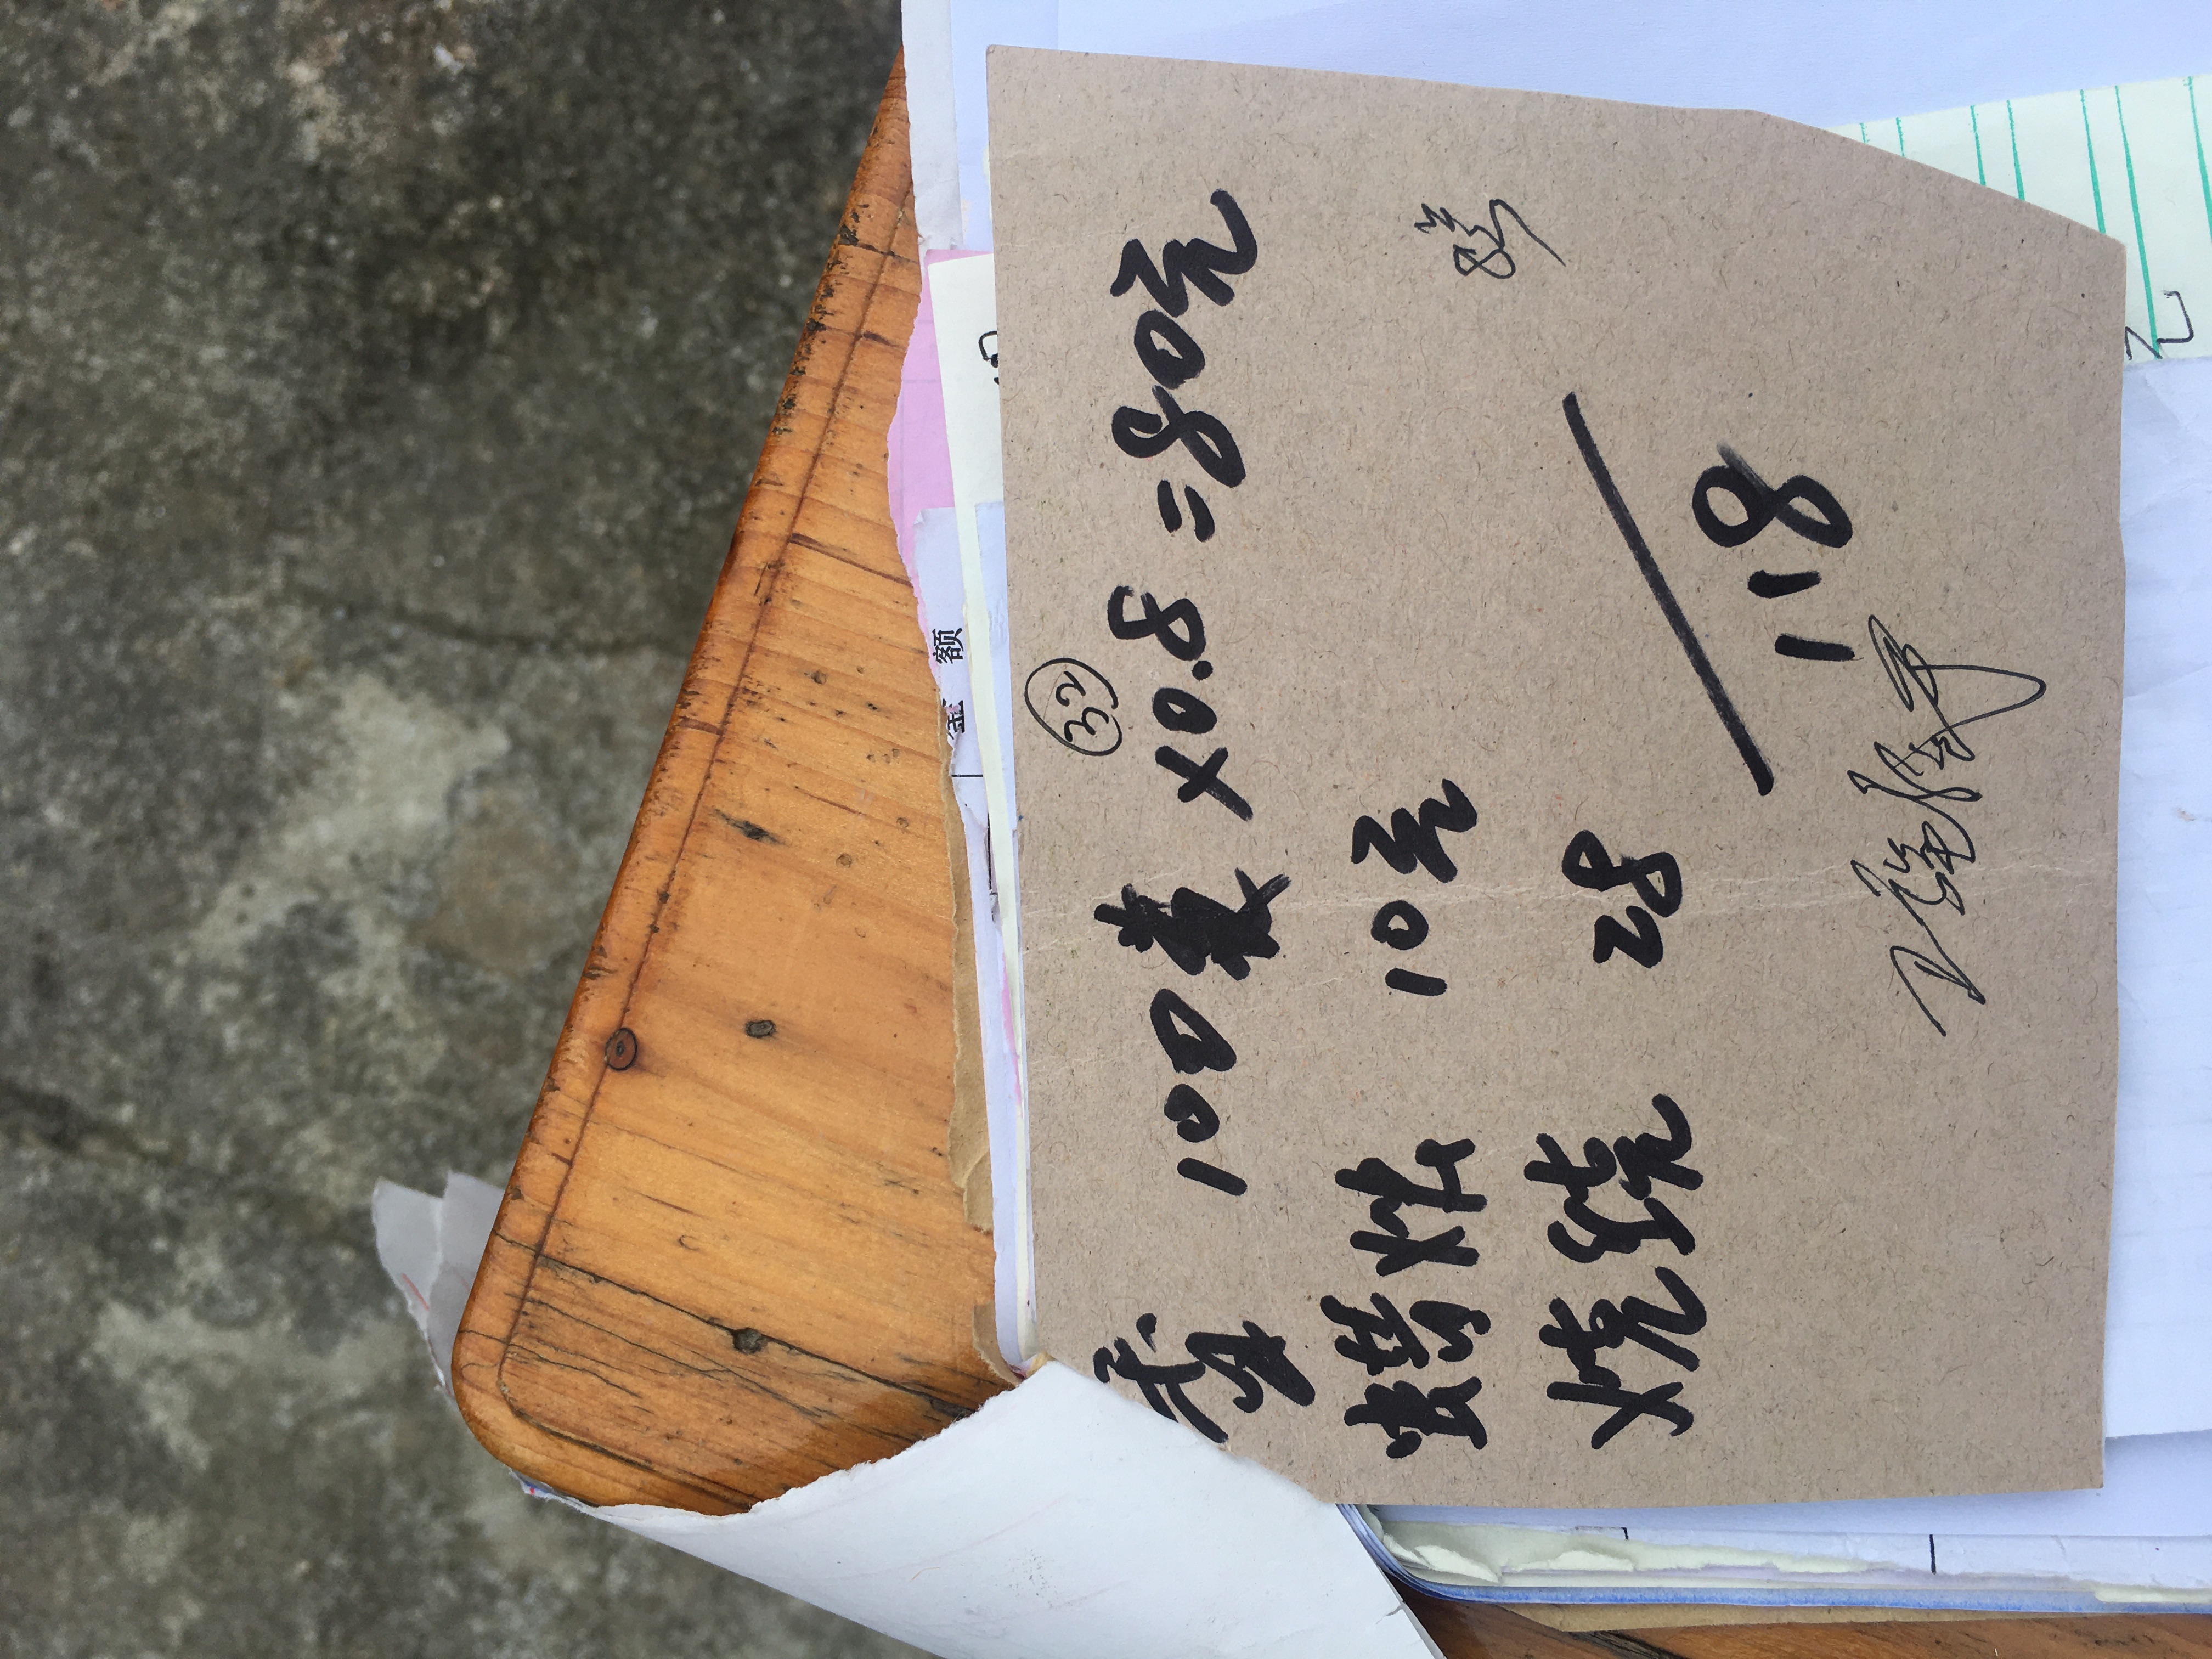 金 额
32
香 100 ×0.8 =80元
蜡烛 10元
烧绕 28
118
元